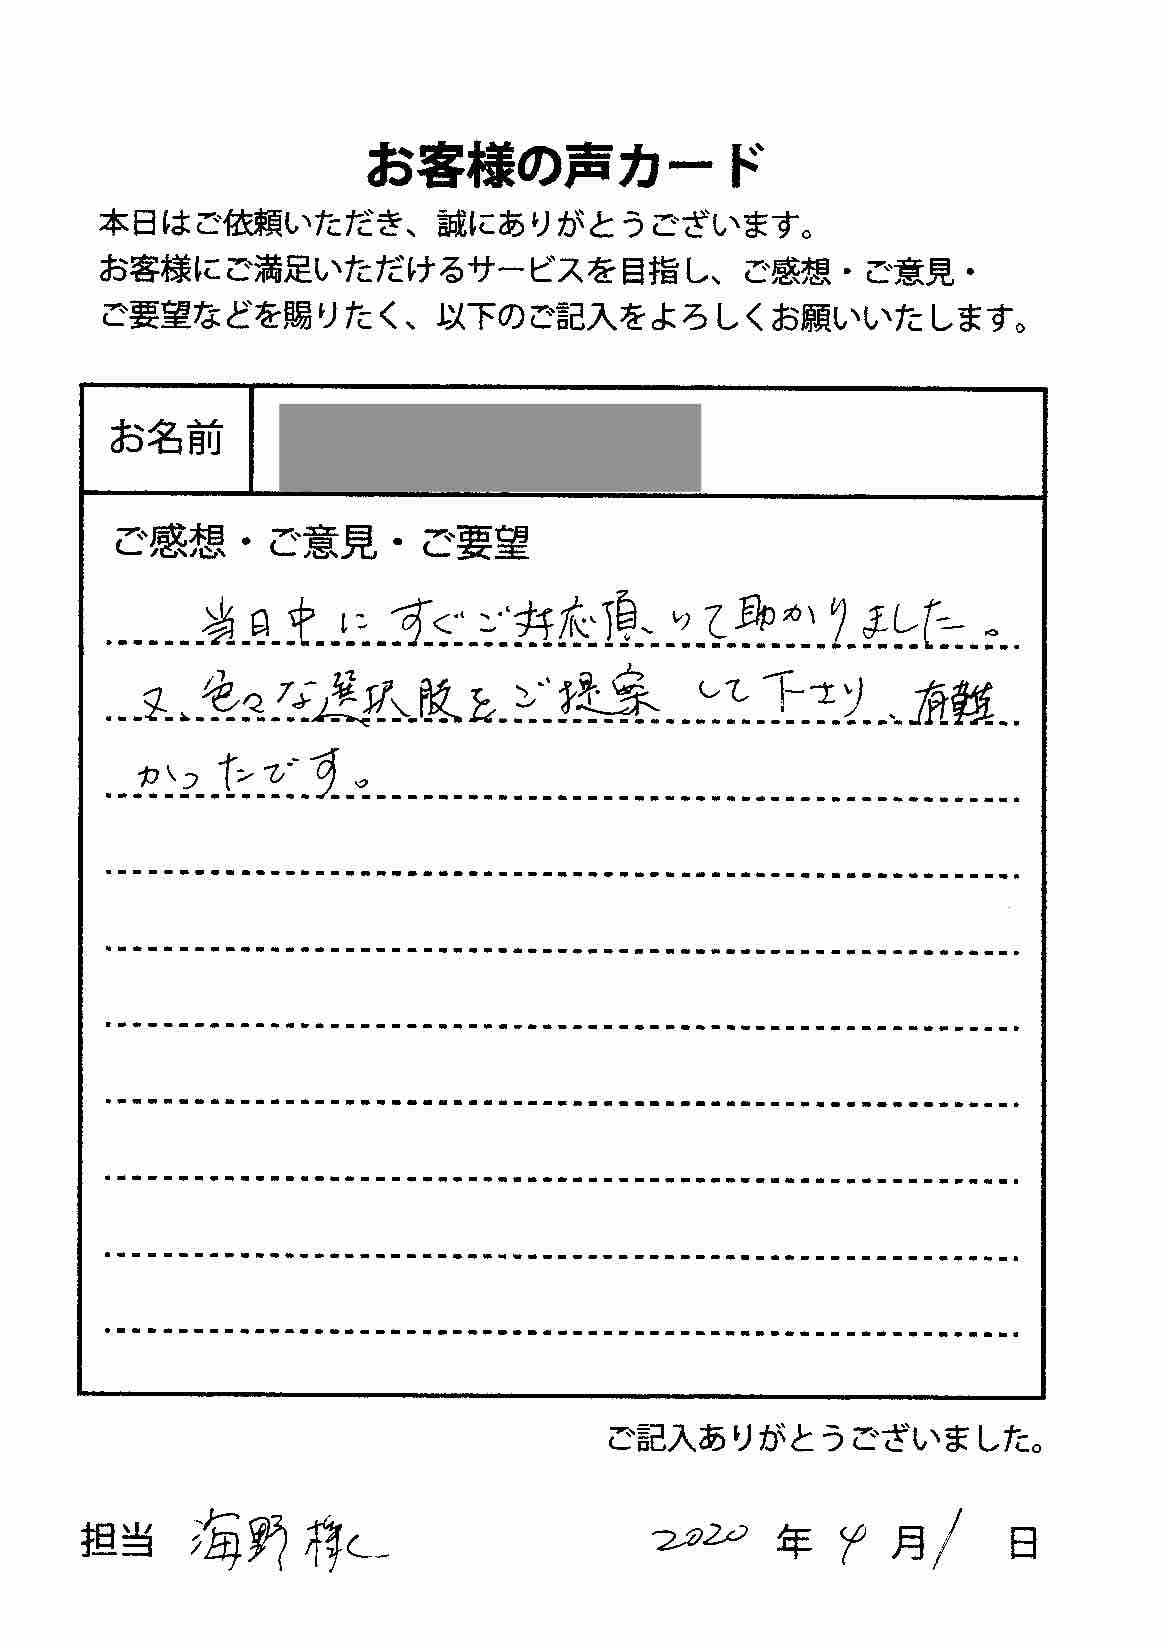 お客様の声カード
本日はご依頼いただき、誠にありがとうございます。
お客様にご満足いただけるサービスを目指し、ご感想・ご意見・
ご要望などを賜りたく、以下のご記入をよろしくお願いいたします。
お名前
ご感想・ご意見・ご要望
当日中にすぐご対応頂いて助かりました。
又、色々な選択肢をご提案して下さり、有難
かったです。
ご記入ありがとうございました。
担当 海野様 2020年4月1日